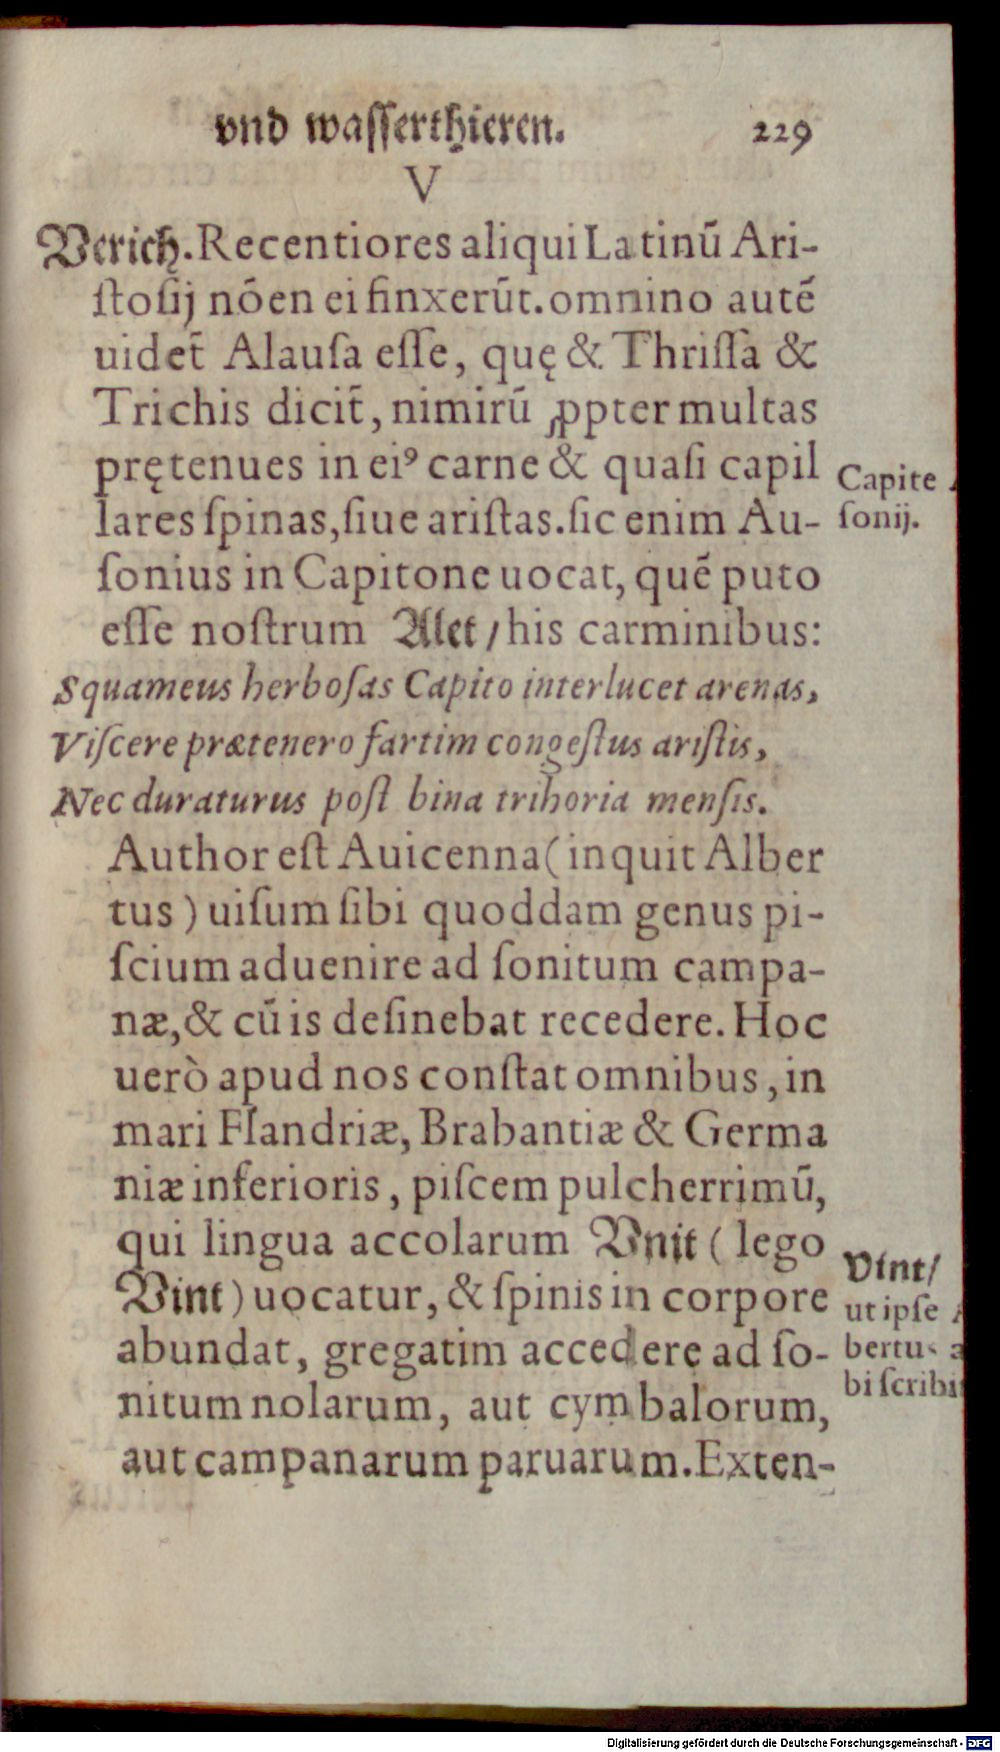 vnd wasserthieren. 229
V
Verich. Recentiores aliqui Latinū Ari-
ſtoſij nōen ei finxerūt. omnino autē
uidet̄ Alauſa eſſe, quę & Thriſſa &
Trichis dicit̄, nimirū ꝓpter multas
prętenues in eiꝰ carne & quaſi capil
lares ſpinas, ſiue ariſtas. ſic enim Au-
ſonius in Capitone uocat, quē puto
eſſe noſtrum Alet / his carminibus:
Capite
ſonij.
Squameus herboſas Capito interlucet arenas,
Viſcere prætenero fartim congeſtus ariſtis,
Nec duraturus poſt bina trihoria menſis.
Author eſt Auicenna ( inquit Alber
tus ) uiſum ſibi quoddam genus pi-
ſcium aduenire ad ſonitum campa-
næ, & cū is deſinebat recedere. Hoc
uerò apud nos conſtat omnibus, in
mari Flandriæ, Brabantiæ & Germa
niæ inferioris, piſcem pulcherrimū,
qui lingua accolarum Vnit ( lego
Vint ) uocatur, & ſpinis in corpore
abundat, gregatim accedere ad ſo-
nitum nolarum, aut cymbalorum,
aut campanarum paruarum. Exten-
Vint /
ut ipſe
bertus
bi ſcribi
Digitalisierung gefördert durch die Deutsche Forschungsgemeinschaft - DFG